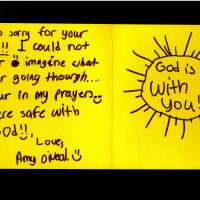 sorry for your
!! I could not
imagine what
going though....
ur in my prayers
ere safe with
od!!
Love,
Amy O'Neal
God is
With
you!